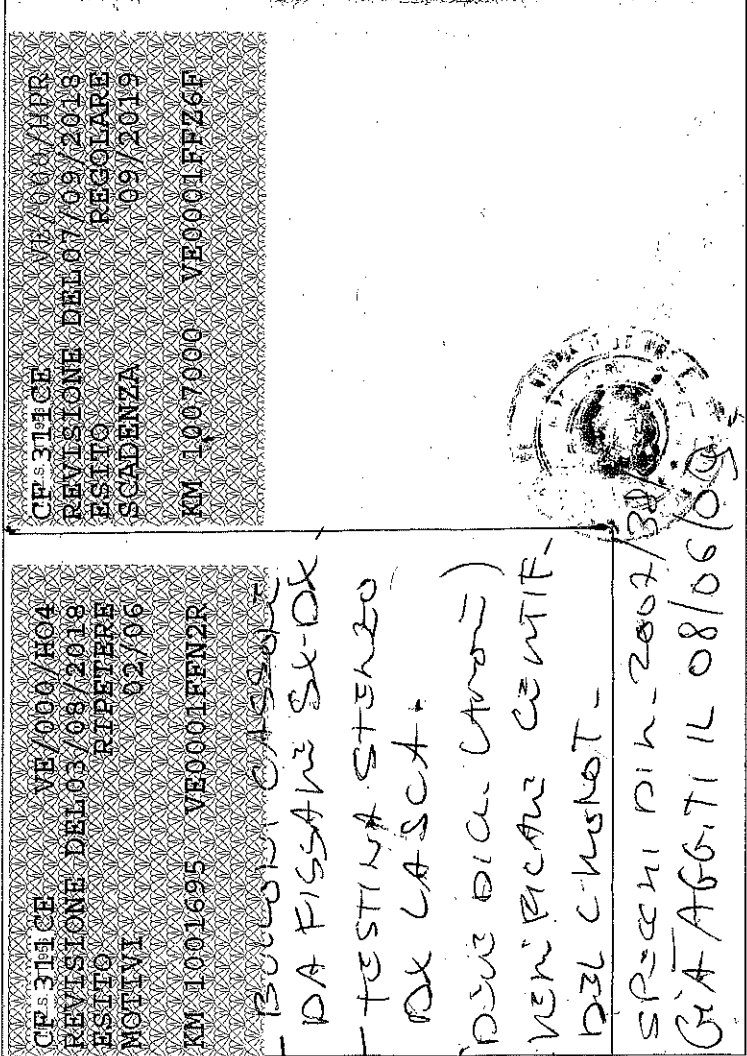 CF 311CE VE/000/HO4
REVISIONE DEL 03/08/2018
ESITO RIPETERE
MOTIVI 02/06
KM 1001695 VE0001FFN2R
- BULLONI
DA FISSARE SX-DX
- TESTINA STERZO
DX LASCA.
VERIFICARE CERTIF.
DEL CRONOT-
SPECCHI DIR. 2007/38/
GIÀ AGG.TI IL 08/06/09
CF 311CE VE/000/HPR
REVISIONE DEL 07/09/2018
ESITO REGOLARE
SCADENZA 09/2019
KM 1007000 VE0001FFZ6F